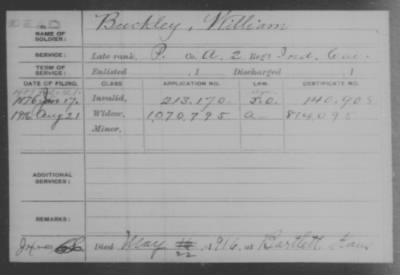 DEAD
NAME OF SOLDIER: Buckley, William
SERVICE: Late rank, P. Co. A, 2 Reg't Ind. Cav.
TERM OF SERVICE: Enlisted , 1 Discharged , 1
DATE OF FILING. CLASS. APPLICATION NO. LAW. CERTIFICATE NO.
1876 Jan 17 Invalid, 213.170 140.905
1916 Aug 21 Widow, 1,070,795 814,095
Minor,
ADDITIONAL SERVICES:
REMARKS:
Died May 22, 1916, at Bartlett, Kans